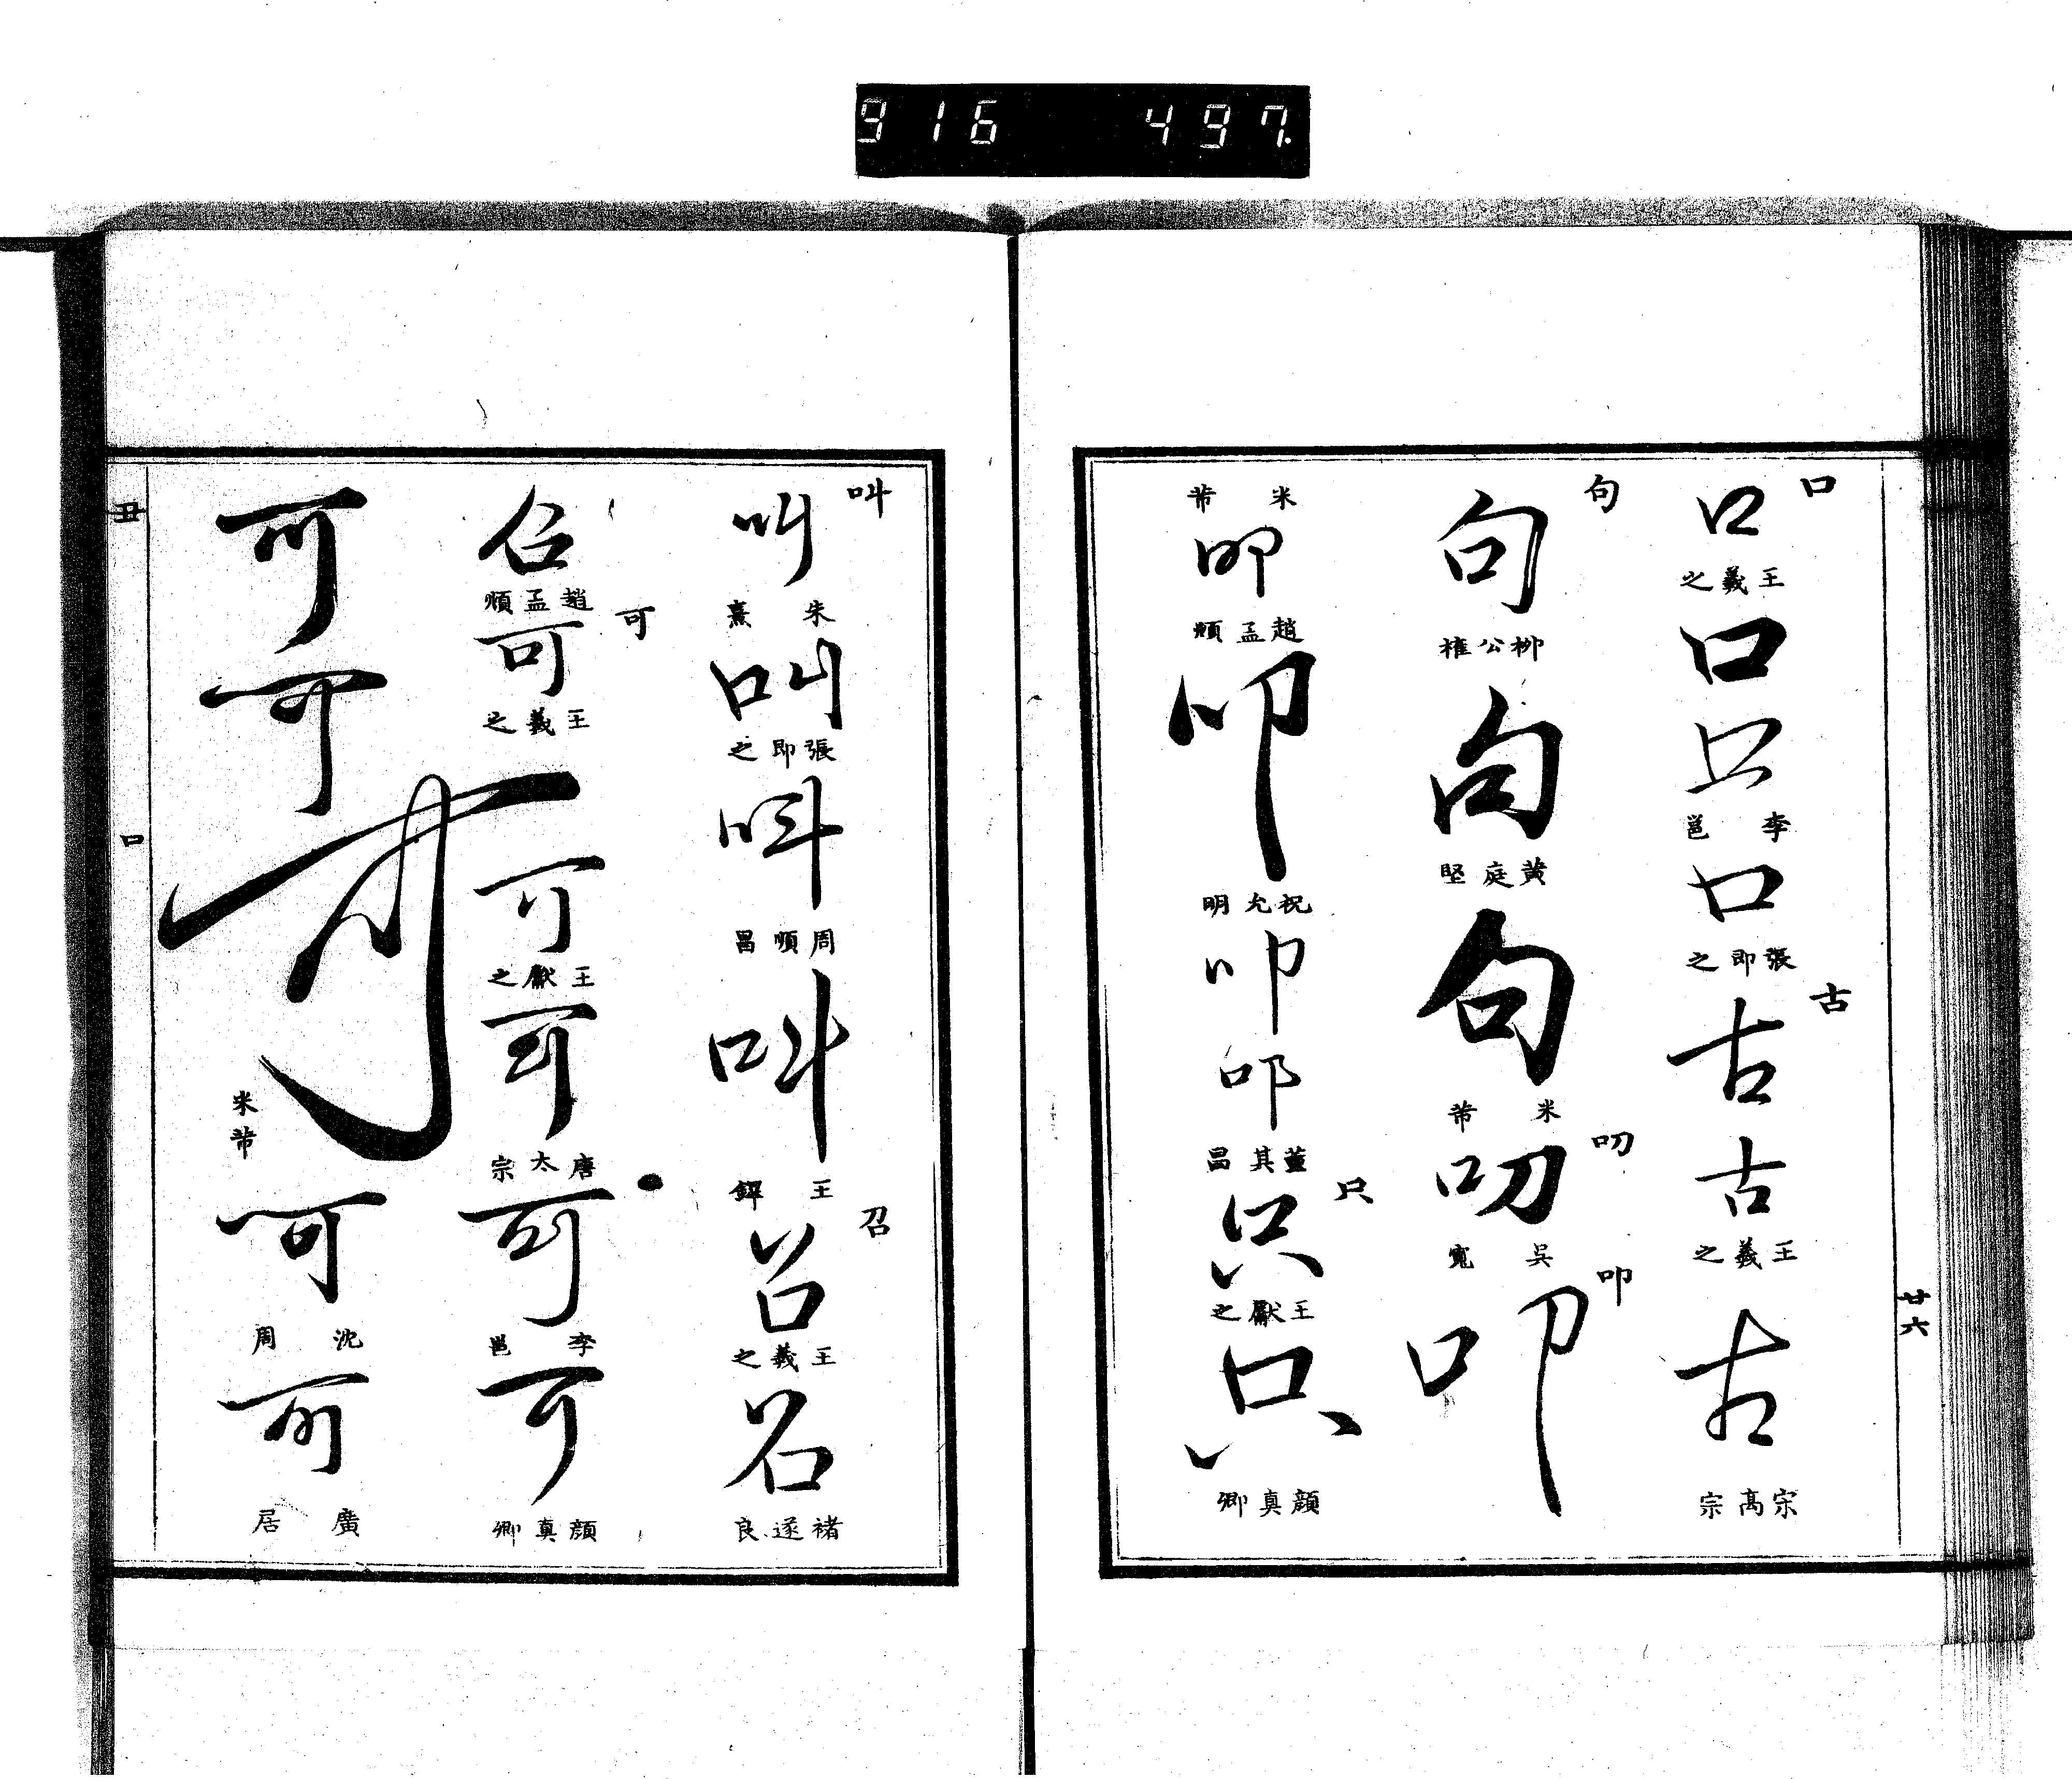 916 497.
口
口
王羲之
口
口
李邕
口
張即之
古
古
古
王羲之
古
宋高宗
廿六
句
句
柳公權
句
黄庭堅
句
米芾
叨
叨
吳寬
叩
叩
米芾
叩
趙孟頫
叩
祝允明
叩
叩
董其昌
只
只
王獻之
只
顔真卿
叫
叫
朱熹
叫
張即之
叫
周順昌
叫
王鐸
召
召
王羲之
召
褚遂良
召
趙孟頫
可
可
王羲之
可
王獻之
可
唐太宗
可
李邕
可
顔真卿
可
可
可
米芾
可
沈周
可
廣居
丑
口